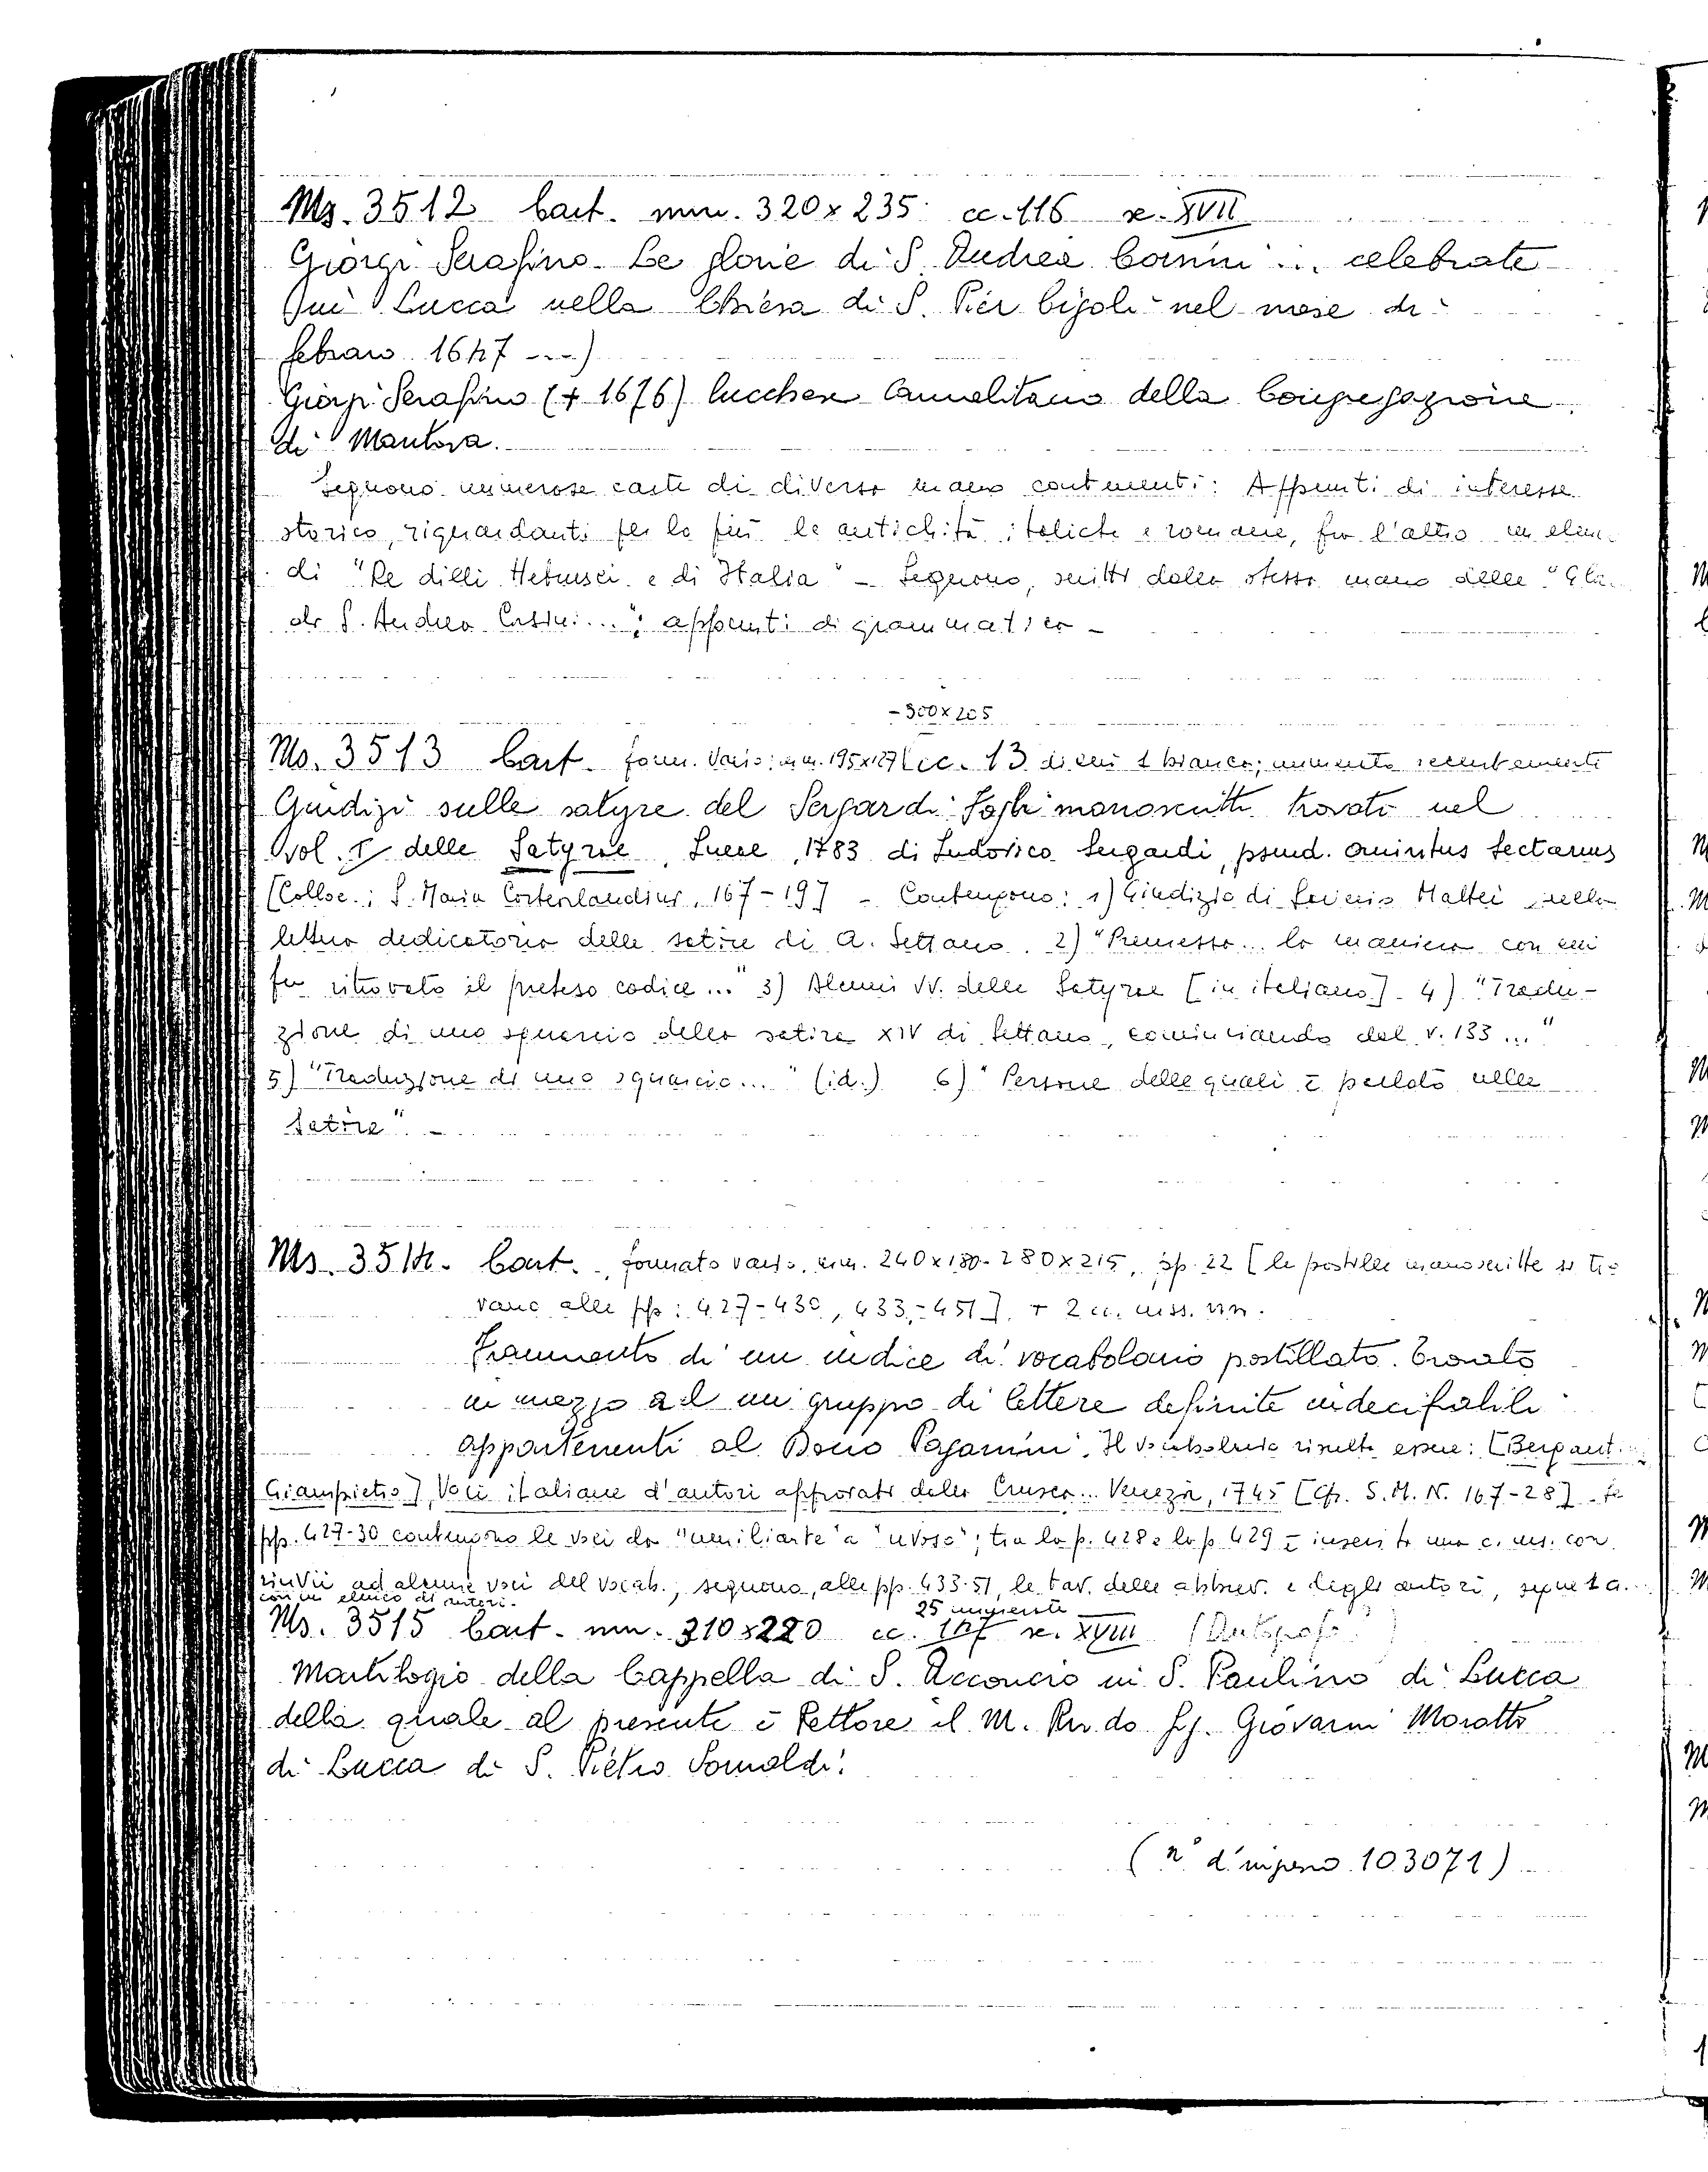 Ms. 3512 Cart. mm. 320 x 235 cc. 116 sc. XVII
Giorgi Serafino. Le glorie di S. Andrea Corsini ... celebrate
Qui Lucca nella Chiesa di S. Pier Cigoli nel mese di
febraro 1647 ----)
Giorgi Serafino (+ 1676) lucchese Carmelitano della Congregazione
di Mantova.
Seguono numerose carte di diversa mano contenenti: Appunti di interesse
storico, riguardanti per lo più le antichità italiche e romane, fra l'altro un elen.
di "Re dilli Hetrusci e di Italia" - Seguono, scritti dalla stessa mano delle "Glo.
di S. Andrea Corsini...", appunti di grammatica -
- 300 x 205
Ms. 3513 Cart. form. vario: mm. 195x127 cc. 13 di cui 1 bianca; numerate recentemente
Giudizi sulle satyre del Sergardi. Fogli manoscritti trovati nel
vol. I delle Satyrae, Lucae, 1783 di Ludovico Sergardi, pseud. Quintus Sectanus
[Colloc.: S. Maria Corteorlandini, 167-19] - Contengono: 1) Giudizio di Saverio Mattei nella
lettera dedicatoria delle satire di Q. Settano. 2) "Premessa... la maniera con cui
fu ritrovato il preteso codice..." 3) Alcuni vv. delle Satyrae [in italiano]. 4) "Tradu-
zione di uno squarcio della satira XIV di Settano, cominciando dal v. 133 ..."
5) "Traduzione di uno squarcio..." (id.) 6) "Persone delle quali è parlato nelle
Satire". -
Ms. 3514. Cart., formato vario, mm. 240 x 180 - 280 x 215, pp. 22 [le postille manoscritte si tro
vano alle pp: 427-430, 433-451], + 2 cc. mss. nn.
Frammento di un indice di vocabolario postillato. Trovato
in mezzo ad un gruppo di lettere definite indecifrabili
appartenenti al Dono Paganini. Il vocabolario risulta essere: [Bergant.
Giampietro] Voci italiane d'autori approvati dalla Crusca... Venezia, 1745 [Cfr. S. M. N. 167-28]. Le
pp. 427-30 contengono le voci da "umiliante" a "uvoso"; tra la p. 428 e la p. 429 è inserita una c. ms. con
rinvii ad alcune voci del vocab., seguono, alle pp. 433-51, le tav. delle abbrev. e degli autori, segue 1 c.
con un elenco di autori.
25 numerate
Ms. 3515 Cart. mm. 310 x 220 cc. 147 sc. XVIII (Autografo)
Martilogio della Cappella di S. Acconcio in S. Paulino di Lucca
della quale al presente è Rettore il M. Rev.do Sig. Giovanni Moratti
di Lucca di S. Pietro Somaldi.
(n° d'ingresso 103071)